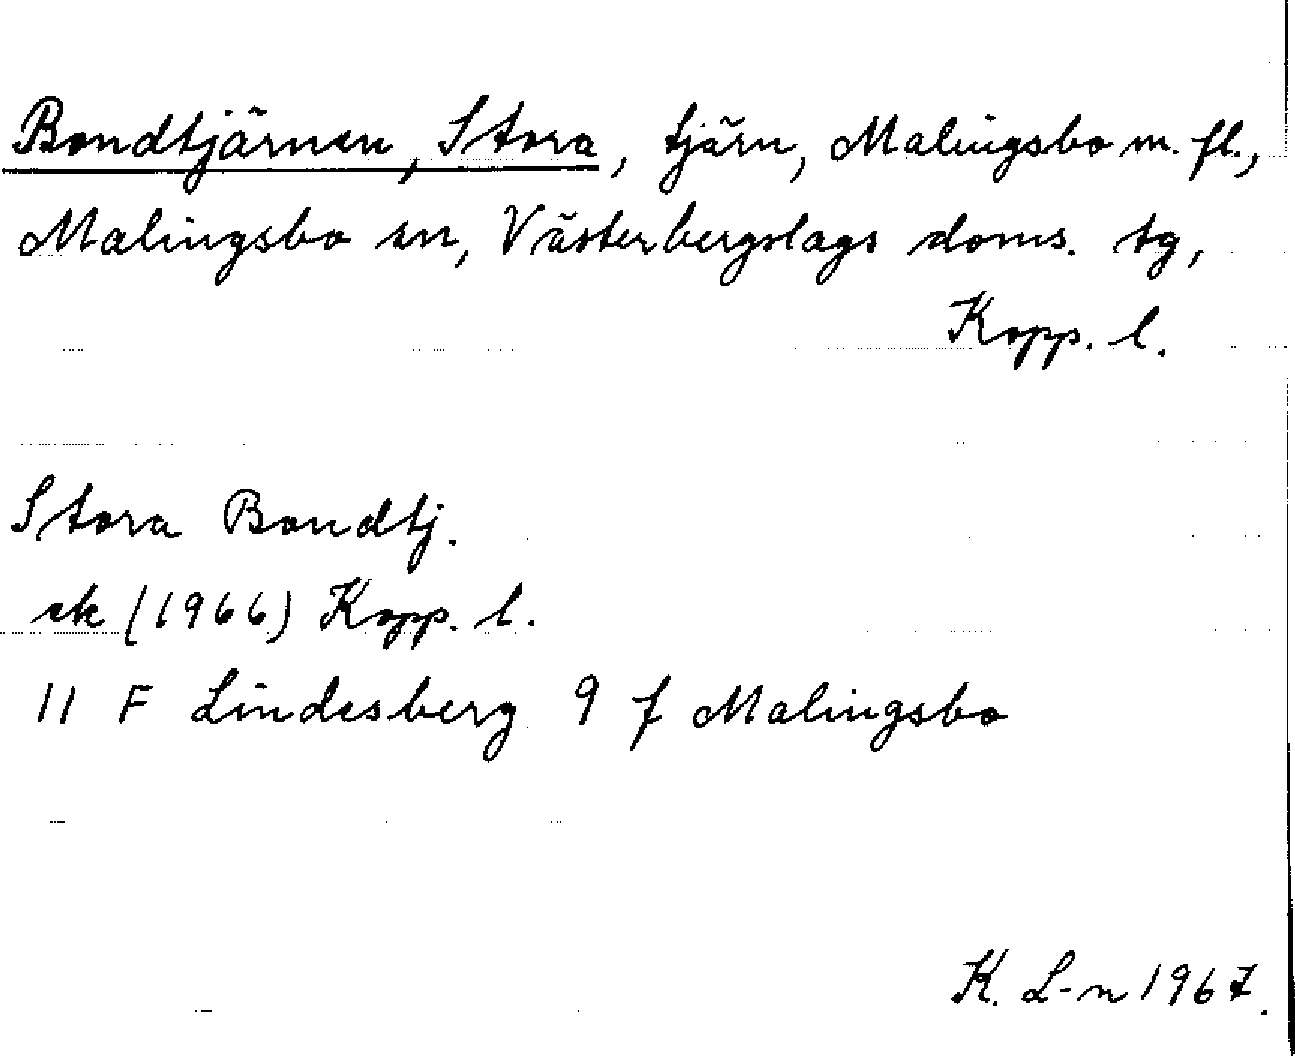 Bondtjärnen, Stora, tjärn, Malingsbo m. fl.,
Malingsbo sn, Västerbergslags doms. tg,
Kopp. l.
Stora Bondtj.
ek (1966) Kopp. l.
11 F Lindesberg 9 f Malingsbo
K. L-n 1967.